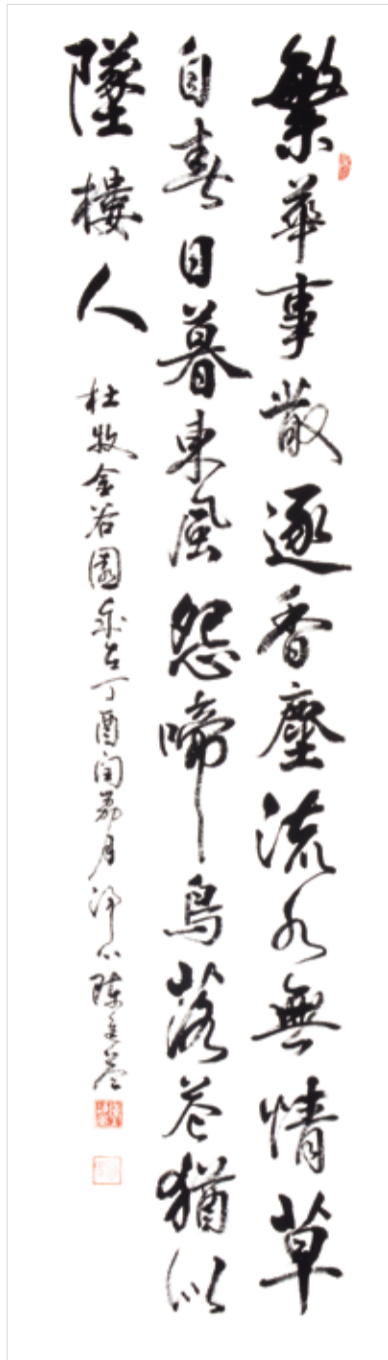 繁華事散逐香塵流水無情草
自春日暮東風怨啼鳥落花猶似
墜樓人
杜牧金谷園 丁酉閏荔月 陳